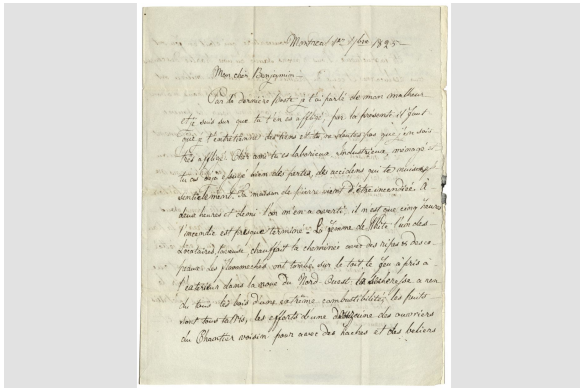 Montreal 1er 7bre 1825
Mon cher Benjamin
Par la derniere Poste je t'ai parlé de mon malheur
et je suis sur que tu t'en es affligé, par la presente il faut
que je t'entretienne des tiens et tu ne doutes pas que j'en suis
très affligé. Cher ami tu es laborieux, industrieux, ménager et
tu as déjà essuyé bien des pertes, des accidens qui te nuisent
sentiellement. Ta maison de pierre vient d'être incendiée. À
deux heures et demi l'on m'en a averti, il n'est que cinq heures
l'incendie est presque terminé. La femme de White l'un des
Locataires, chauffait sa cheminée avec des ripes & des co-
peaux, les flammeches ont tombé sur le toit le feu a pris à
l'exterieur dans la noue du Nord Ouest la secheresse a ren
du tous les bois d'une extrême combustibilité, les puits
sont tous taris, les efforts d'une douzaine des ouvriers
du Chantier voisin pour avec des haches et des beliers